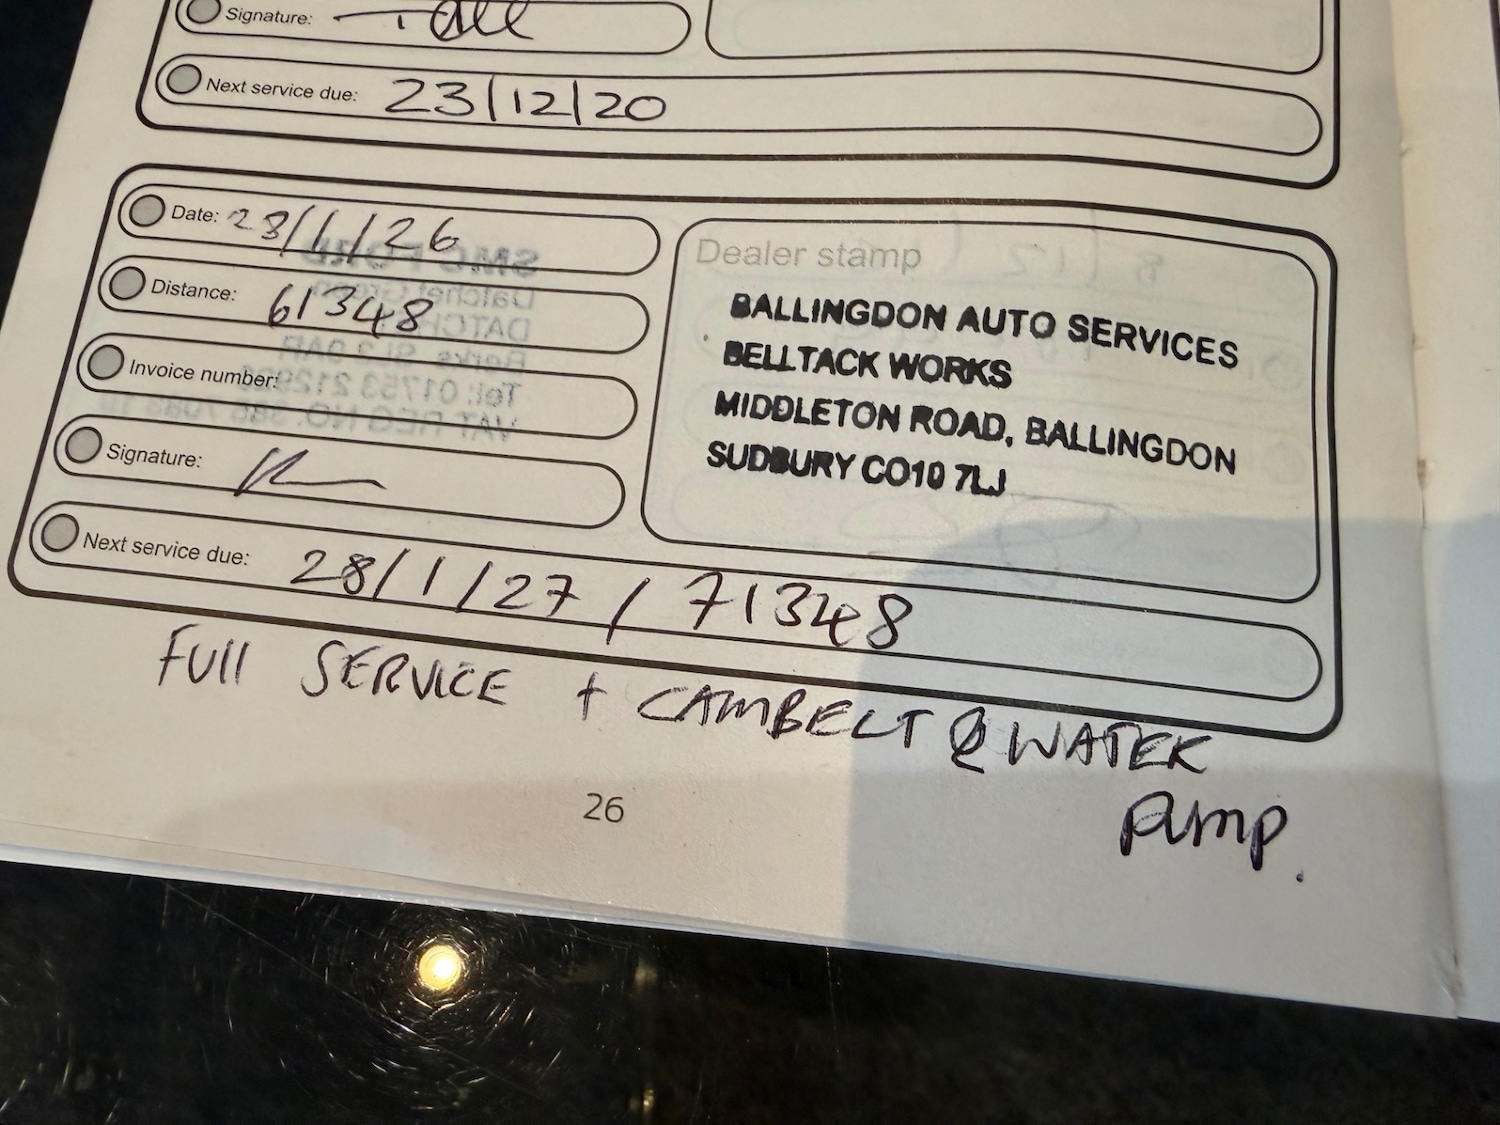 Signature:
Next service due: 23/12/20
Date: 28/1/26
Distance: 61348
Invoice number:
Signature:
Next service due: 28/1/27 / 71348
Dealer stamp
BALLINGDON AUTO SERVICES
BELLTACK WORKS
MIDDLETON ROAD, BALLINGDON
SUDBURY CO10 7LJ
FULL SERVICE + CAMBELT & WATER
PUMP.
26